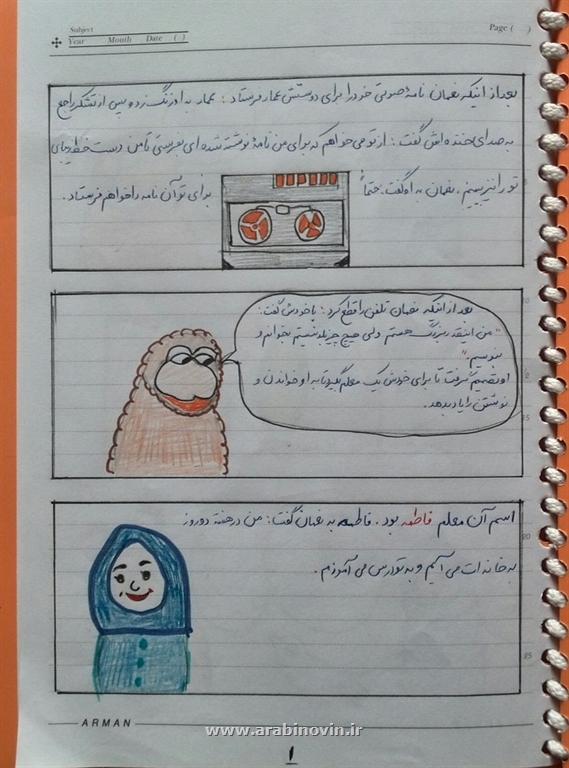 Subject
Year Month Date ( )
Page ( )
بعد از اینکه نعمان نامهٔ صوتی خود را برای دوستش عمار فرستاد ؛ عمار به او زنگ زد و پس از تشکر راجع
به صدای خنده اش گفت : از تو می خواهم که برای من نامهٔ نوشته شده ای بفرستی تا من دست خط زیبای
تو را نیز ببینم . نعمان به او گفت : حتماً برای تو آن نامه را خواهم فرستاد .
بعد از اینکه نعمان تلفن را قطع کرد ؛ با خودش گفت :
"من اینقدر بزرگ هستم ولی هیچ چیز بلد نیستم بخوانم و
بنویسم ."
او تصمیم گرفت تا برای خودش یک معلم بگیرد تا به او خواندن و
نوشتن را یاد بدهد.
اسم آن معلم فاطمه بود . فاطمه به نعمان گفت : من در هفته دو روز
به خانه ات می آیم و به تو درس می آموزم .
20
25
ARMAN
www.arabinovin.ir
۱